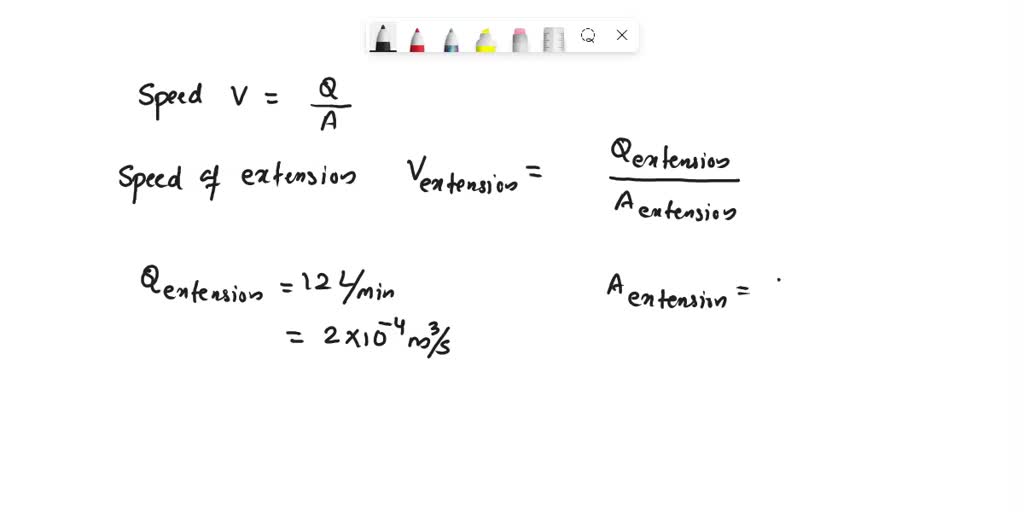 Speed V = Q/A
Speed of extension V extension = Q extension / A extension
Q extension = 12 L/min
A extension =
= 2 × 10⁻⁴ m³/s